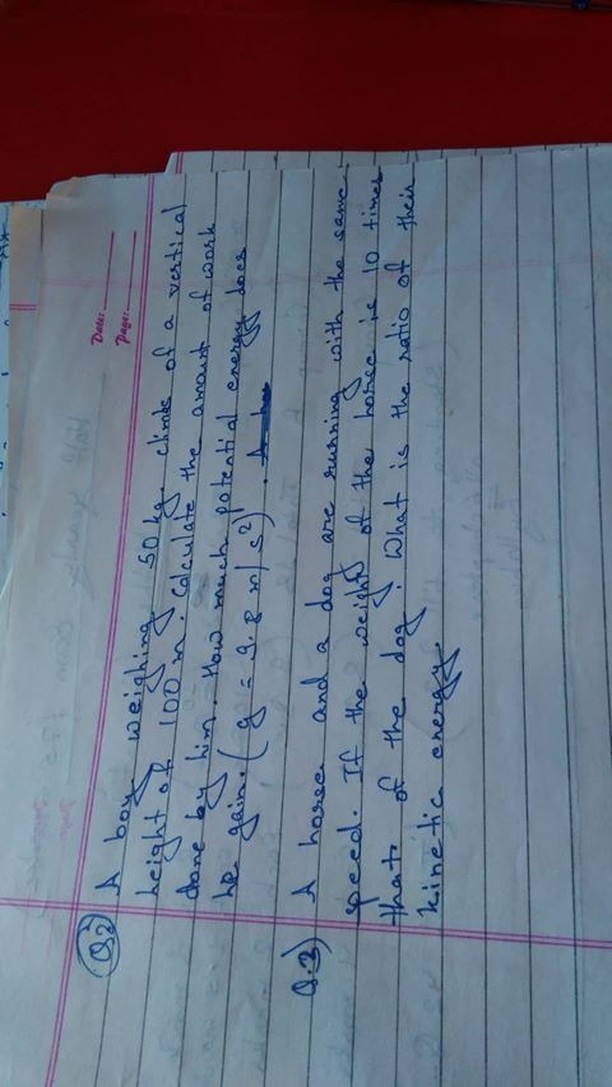 Date:
Page:
Q2 A boy weighing 50 kg. climbs of a vertical
height of 100 m. Calculate the amount of work
done by him. How much potential energy does
he gain. (g = 9.8 m/s²).
Q.3) A horse and a dog are running with the same
speed. If the weight of the horse is 10 times
that of the dog. What is the ratio of their
kinetic energy.